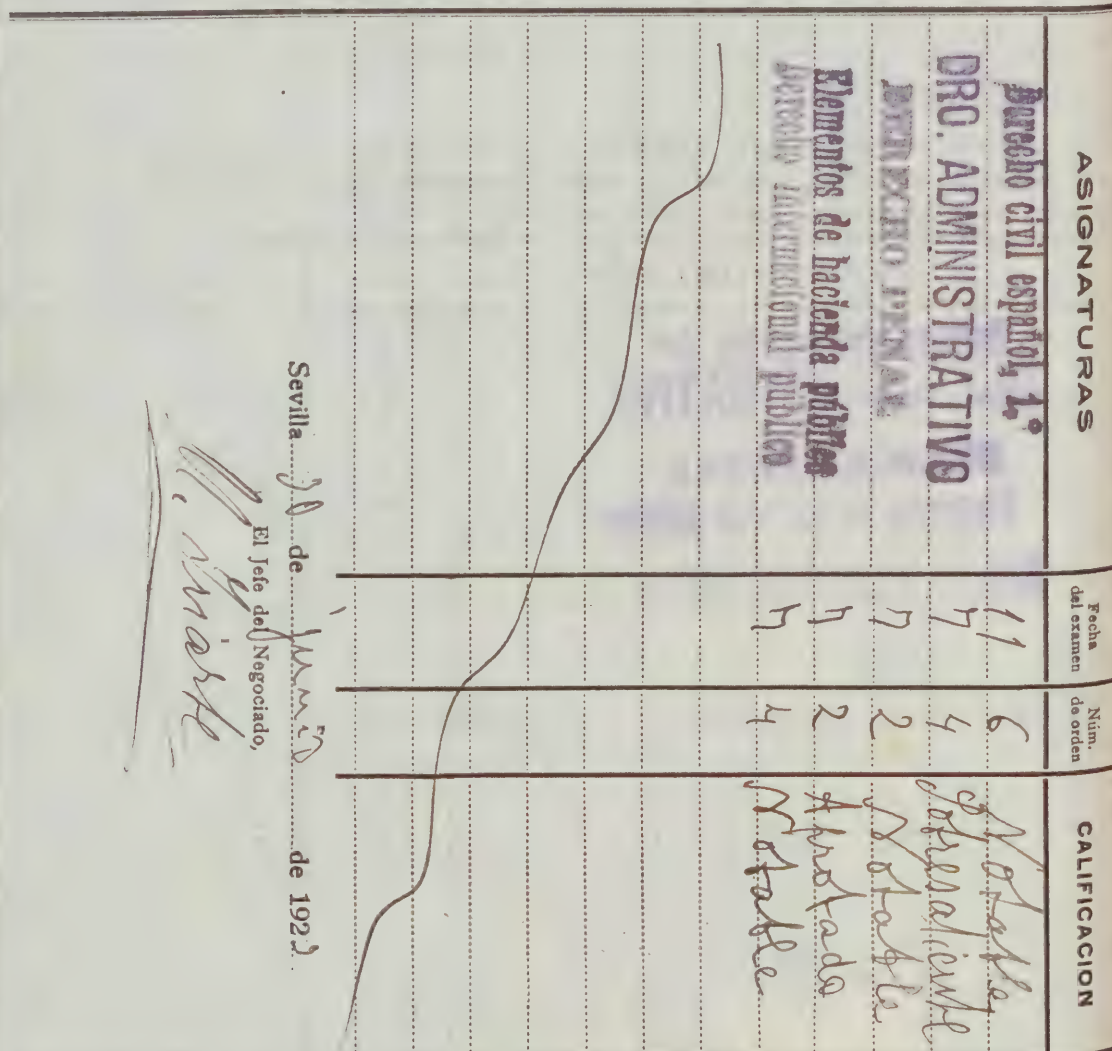 ASIGNATURAS Fecha del examen Núm. de orden CALIFICACION
Derecho civil español, 1.º 11 6 Notable
DRO. ADMINISTRATIVO 7 4 Sobresaliente
DERECHO PENAL 7 2 Notable
Elementos de hacienda pública 7 2 Aprobado
Derecho internacional público 7 4 Notable
Sevilla 20 de junio de 1922
El Jefe del Negociado,